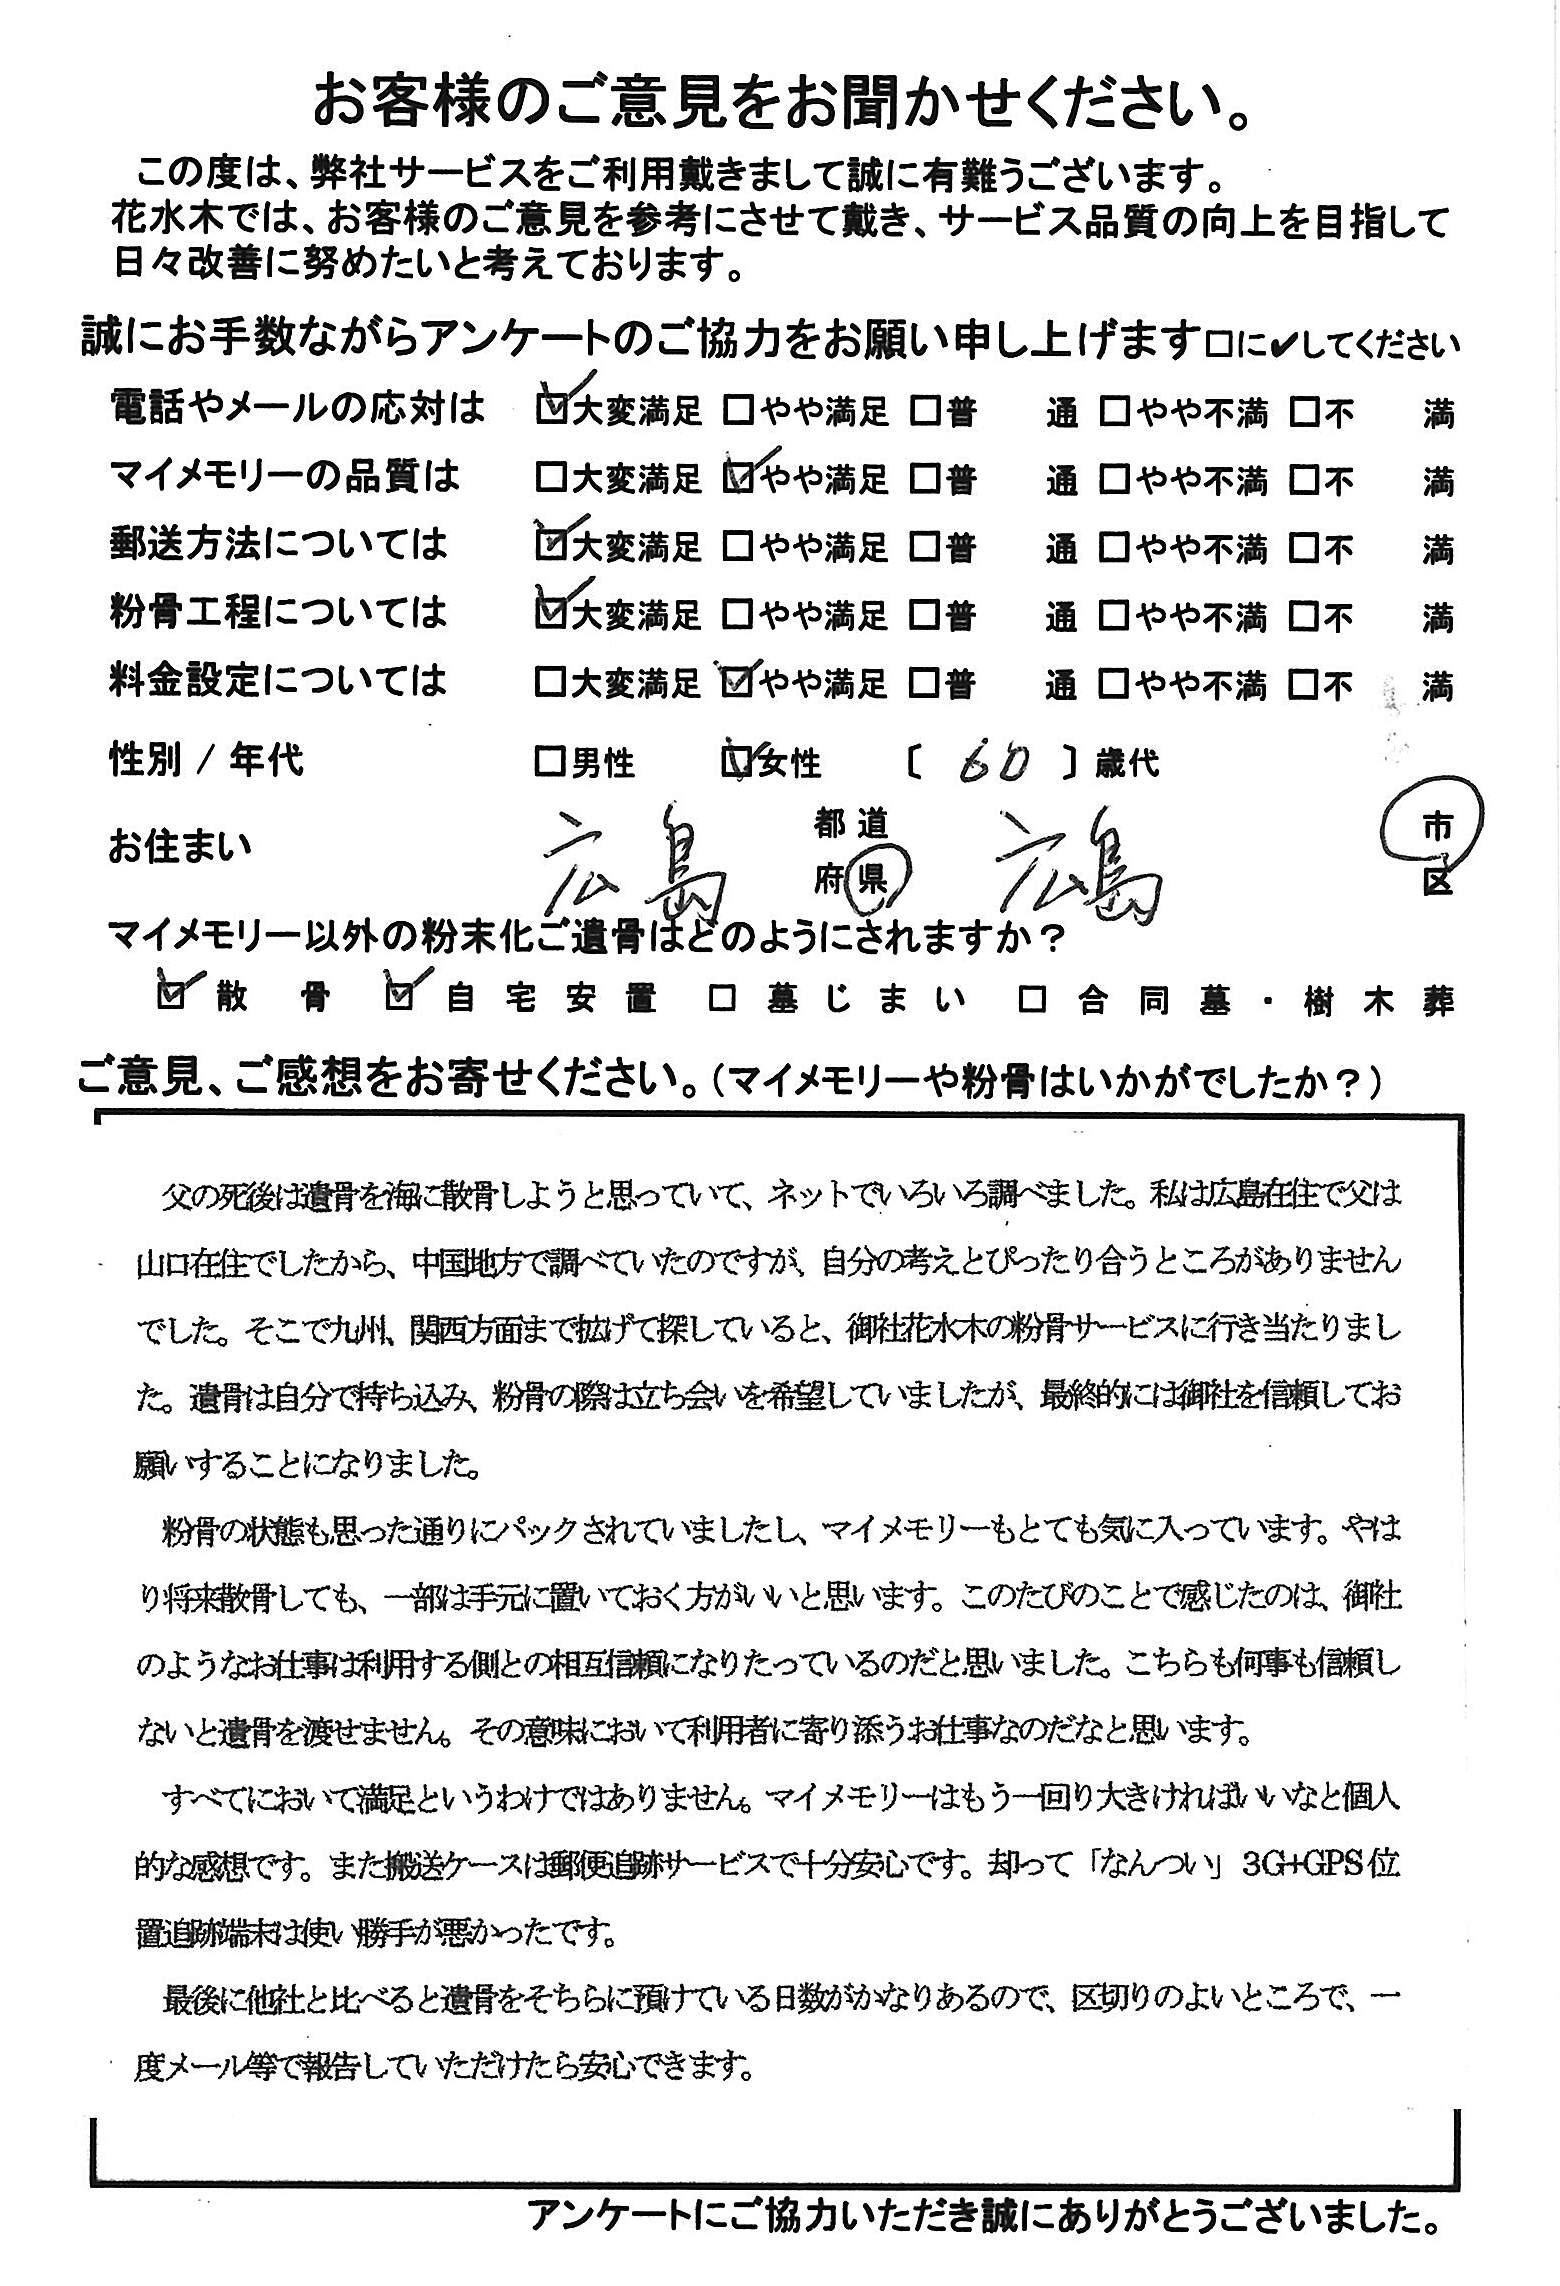 お客様のご意見をお聞かせください。
この度は、弊社サービスをご利用戴きまして誠に有難うございます。
花水木では、お客様のご意見を参考にさせて戴き、サービス品質の向上を目指して
日々改善に努めたいと考えております。
誠にお手数ながらアンケートのご協力をお願い申し上げます□に✔してください
電話やメールの応対は ☑大変満足 □やや満足 □普 通 □やや不満 □不 満
マイメモリーの品質は □大変満足 ☑やや満足 □普 通 □やや不満 □不 満
郵送方法については ☑大変満足 □やや満足 □普 通 □やや不満 □不 満
粉骨工程については ☑大変満足 □やや満足 □普 通 □やや不満 □不 満
料金設定については □大変満足 ☑やや満足 □普 通 □やや不満 □不 満
性別 / 年代 □男性 ☑女性 〔 60 〕歳代
お住まい 広島 都道府県 広島 市区
マイメモリー以外の粉末化ご遺骨はどのようにされますか？
☑ 散骨 ☑ 自宅安置 □ 墓じまい □ 合同墓・樹木葬
ご意見、ご感想をお寄せください。（マイメモリーや粉骨はいかがでしたか？）
父の死後は遺骨を海に散骨しようと思っていて、ネットでいろいろ調べました。私は広島在住で父は
山口在住でしたから、中国地方で調べていたのですが、自分の考えとぴったり合うところがありません
でした。そこで九州、関西方面まで拡げて探していると、御社花水木の粉骨サービスに行き当たりまし
た。遺骨は自分で持ち込み、粉骨の際は立ち会いを希望していましたが、最終的には御社を信頼してお
願いすることになりました。
粉骨の状態も思った通りにパックされていましたし、マイメモリーもとても気に入っています。やは
り将来散骨しても、一部は手元に置いておく方がいいと思います。このたびのことで感じたのは、御社
のようなお仕事は利用する側との相互信頼になりたっているのだと思いました。こちらも何事も信頼し
ないと遺骨を渡せません。その意味において利用者に寄り添うお仕事なのだなと思います。
すべてにおいて満足というわけではありません。マイメモリーはもう一回り大きければいいなと個人
的な感想です。また搬送ケースは郵便追跡サービスで十分安心です。却って「なんつい」3G+GPS位
置追跡端末は使い勝手が悪かったです。
最後に他社と比べると遺骨をそちらに預けている日数がかなりあるので、区切りのよいところで、一
度メール等で報告していただけたら安心できます。
アンケートにご協力いただき誠にありがとうございました。